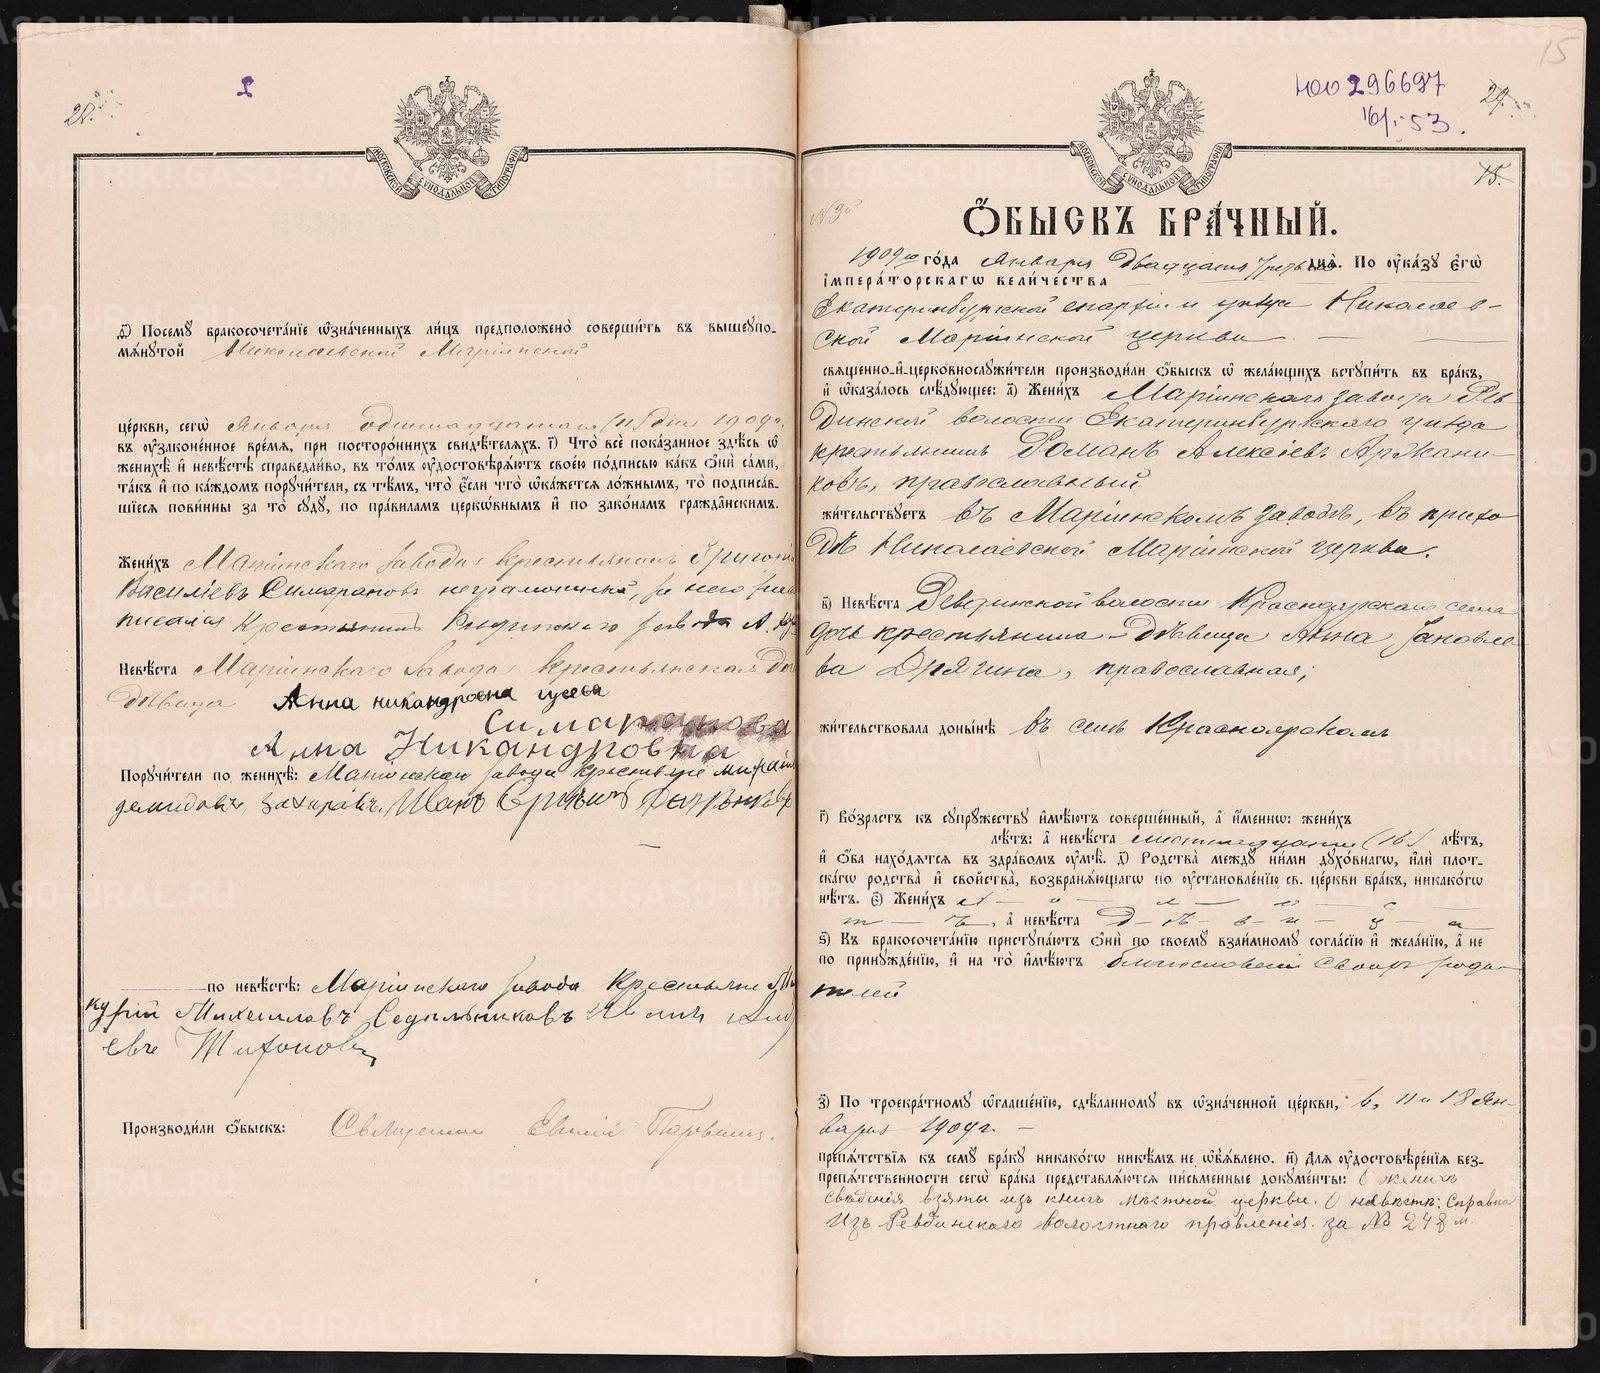 28.
МОСКОВСКОЙ СѴНОДАЛЬНОЙ ТИПОГРАФІИ
д҃і) Посемꙋ бракосочета́нїе ѡ҆зна́ченныхъ ли́цъ предположено̀ соверши́ть въ вышеꙋпо-
мѧ́нꙋтой Николаевской Маріинской
це́ркви, сегѡ̀ Января одиннадцатаго (11) дня 1909 г.
въ ᲂу҆зако́не́нное вре́мѧ, при посторо́ннихъ свидѣ́телѧхъ. і҃) Что̀ всѐ пока́занное здѣ́сь ѡ҆
женихѣ̀ и҆ невѣ́стѣ справедли́во, въ то́мъ ᲂу҆достовѣрѧ́ютъ свое́ю по́дписью ка́къ ѻ҆нѝ са́ми,
та́къ и҆ по ка́ждомъ порꙋчи́тели, съ тѣ́мъ, что̀ є҆́сли что̀ ѡ҆ка́жетсѧ ло́жнымъ, то̀ подписа́в-
шїесѧ пови́нны за то̀ сꙋдꙋ̀, по пра́виламъ церко́внымъ и҆ по зако́намъ гражда́нскимъ.
Жени́хъ Маріинскаго завода крестьянинъ Григорій
Васильевъ Симарановъ неграмотный, за него
писался Крестьянинъ завода А.
Невѣ́ста Маріинскаго завода крестьянская
дѣвица Анна никандровна гусева
Симаранова
Анна Никандровна
Порꙋчи́тели по женихѣ̀: Маріинскаго завода крестьяне
демидовъ захаровъ. Иванъ
по невѣ́стѣ: Маріинскаго завода Крестьяне
Михаиловъ Седельниковъ
евъ Тихоновъ
Производи́ли ѻ҆́быскъ: Священникъ Евгеній
15
Ю00296697
16/I-53.
29.
МОСКОВСКОЙ СѴНОДАЛЬНОЙ ТИПОГРАФІИ
15.
N 3й
Ѻ҆́БЫСКЪ БРА́ЧНЫЙ.
1909го го́да Января двадцать третьяго днѧ̀. По ᲂу҆ка́зꙋ є҆гѡ̀
і҆мпера́торскагѡ вели́чества
Екатеринбургской епархіи и уѣзда Николаев-
ской Маріинской церкви
свѧще́нно-и҆-церковнослꙋжи́тели производи́ли ѻ҆́быскъ ѡ҆ жела́ющихъ встꙋпи́ть въ бра́къ,
и҆ ѡ҆каза́лось слѣ́дꙋющее: а҃) Жени́хъ Маріинскаго завода Рев-
динской волости Екатеринбургскаго уѣзда
крестьянинъ Романъ Алексіевъ Аржани-
ковъ, православный
жи́тельствꙋетъ въ Маріинскомъ заводѣ, въ прихо
дѣ Николаевской Маріинской церкви.
в҃) Невѣ́ста Ревдинской волости Красноярскаго села
дочь крестьянина - дѣвица Анна Яковле-
ва Дрягина, православная;
жи́тельствовала доны́нѣ въ селѣ Красноярскомъ
г҃) Во́зрастъ къ сꙋпрꙋ́жествꙋ и҆мѣ́ютъ соверше́нный, а҆ и҆́меннѡ: жени́хъ
лѣ́тъ: а҆ невѣ́ста шестнадцати (16) лѣ́тъ,
и҆ ѻ҆́ба нахо́дѧтсѧ въ здра́вомъ ᲂу҆мѣ̀. д҃) Родства̀ междꙋ̀ ни́ми дꙋхо́внагѡ, и҆лѝ плот-
ска́гѡ родства̀ и҆ свойства̀, возбранѧ́ющагѡ по ᲂу҆становле́нїю св. це́ркви бра́къ, никако́гѡ
нѣ́тъ. є҃) Жени́хъ х - о - л - о - с
т - ъ, а҆ невѣ́ста д - ѣ - в - и - ц - а
ѕ҃) Къ бракосочета́нїю пристꙋпа́ютъ ѻ҆нѝ по своемꙋ̀ взаи́мномꙋ согла́сїю и҆ жела́нїю, а҆ не
по принꙋжде́нїю, и҆ на то̀ и҆мѣ́ютъ благословеніе своихъ роди-
телей
з҃) По троекра́тномꙋ ѡ҆глаше́нїю, сдѣ́ланномꙋ въ ѡ҆зна́ченной це́ркви, 6, 11 и 18 Ян-
варя 1909 г.
препѧ́тствїѧ къ семꙋ̀ бра́кꙋ никако́гѡ никѣ́мъ не ѡ҆б̾ѧ́влено. и҃) Длѧ ᲂу҆достовѣре́нїѧ без-
препѧ́тственности сегѡ̀ бра́ка представлѧ́ютсѧ пи́сьменные докꙋме́нты: О женихѣ
сведенія взяты изъ книгъ мѣстной церкви. О невѣстѣ: Справка
изъ Ревдинскаго волостнаго правленія за № 248 м.